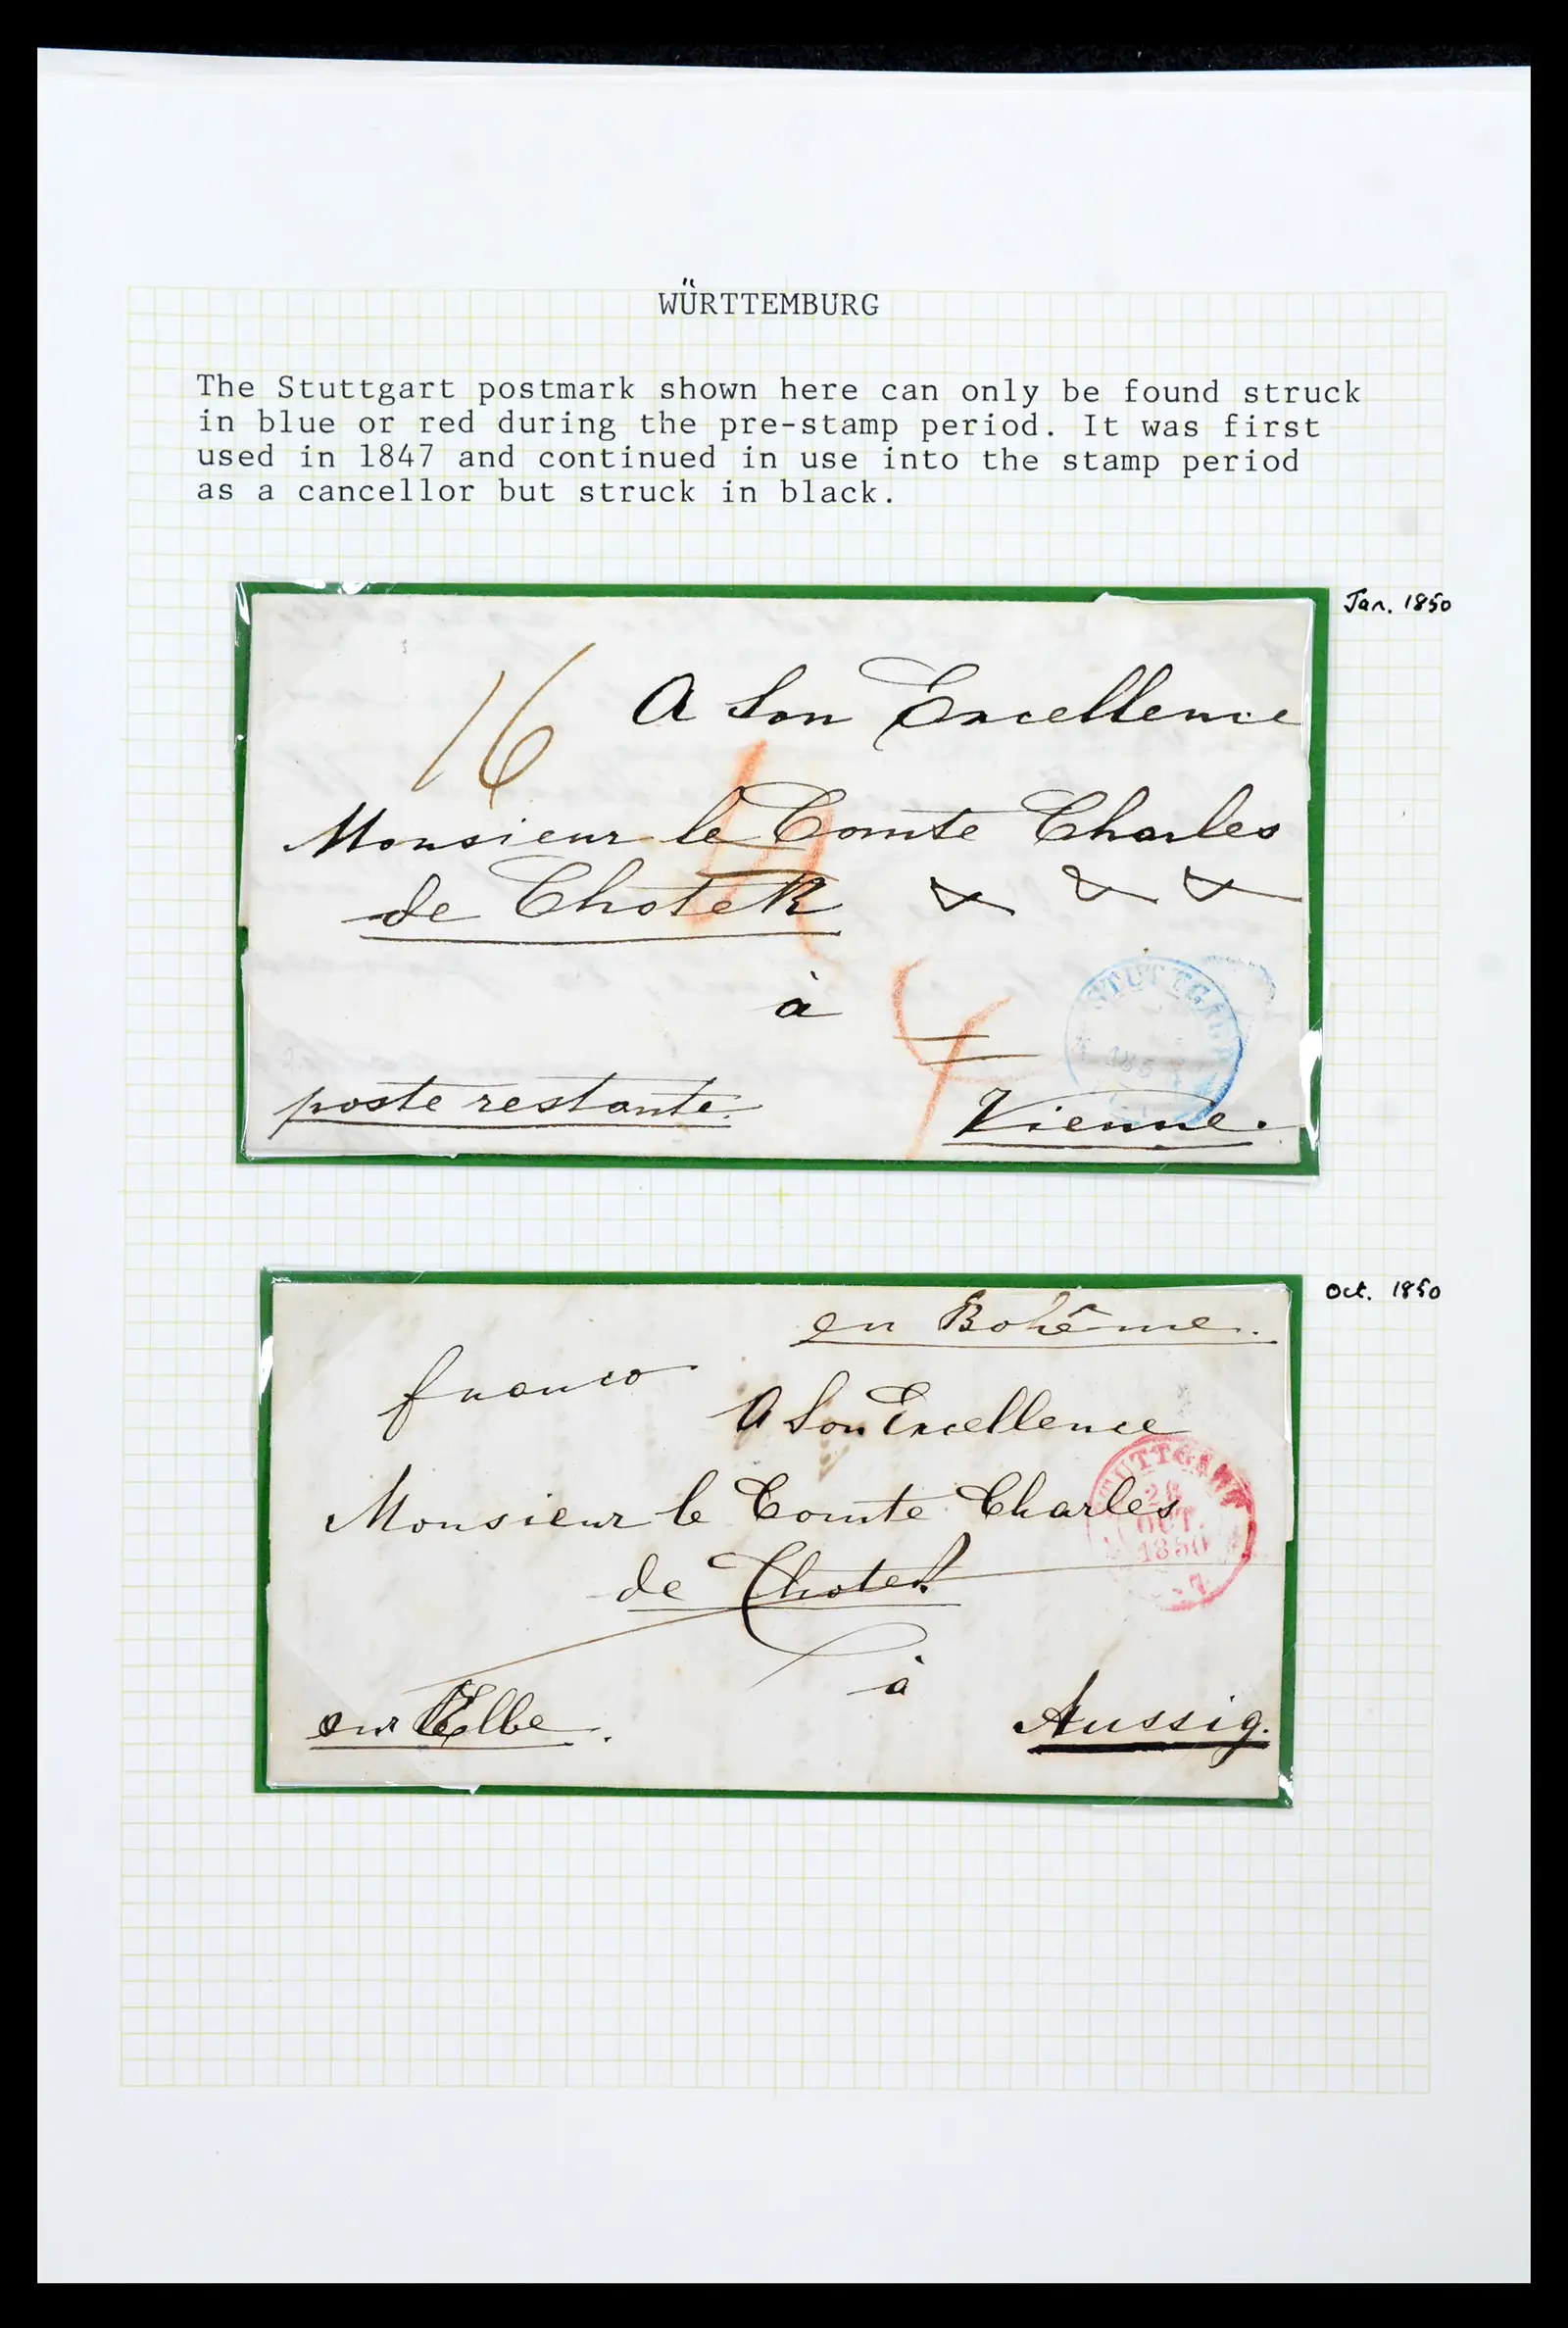 WÜRTTEMBURG
The Stuttgart postmark shown here can only be found struck
in blue or red during the pre-stamp period. It was first
used in 1847 and continued in use into the stamp period
as a cancellor but struck in black.
Jan. 1850
16
A Son Excellence
Monsieur le Comte Charles
de Chotek
à
STUTTGART
poste restante.
Vienne.
Oct. 1850
en Bohême.
franco
A Son Excellence
STUTTGART
28
OCT.
1850
Monsieur le Comte Charles
de Chotek
à
sur Elbe.
Aussig.